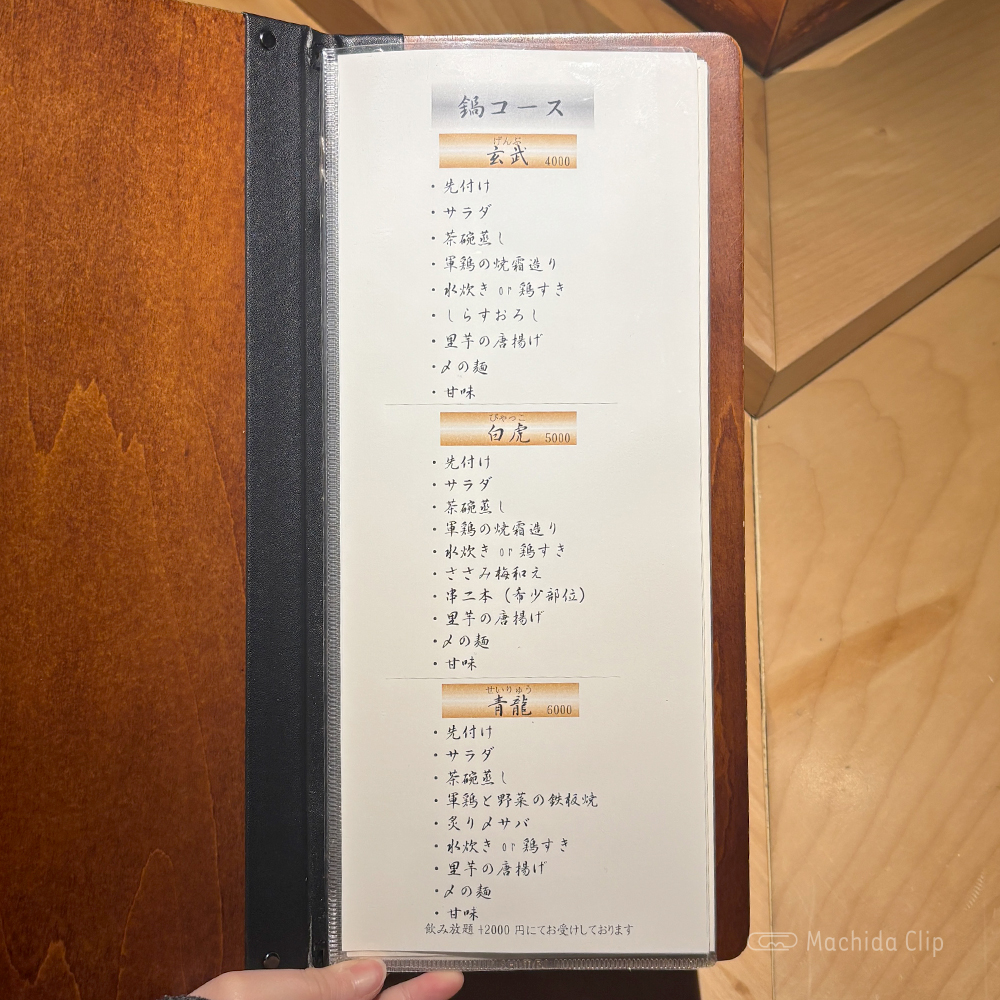 鍋コース
げんぶ
玄武 4000
・先付け
・サラダ
・茶碗蒸し
・軍鶏の焼霜造り
・水炊き or 鶏すき
・しらすおろし
・里芋の唐揚げ
・〆の麺
・甘味
びゃっこ
白虎 5000
・先付け
・サラダ
・茶碗蒸し
・軍鶏の焼霜造り
・水炊き or 鶏すき
・ささみ梅和え
・串二本(希少部位)
・里芋の唐揚げ
・〆の麺
・甘味
せいりゅう
青龍 6000
・先付け
・サラダ
・茶碗蒸し
・軍鶏と野菜の鉄板焼
・炙り〆サバ
・水炊き or 鶏すき
・里芋の唐揚げ
・〆の麺
・甘味
飲み放題 +2000 円にてお受けしております
Machida Clip